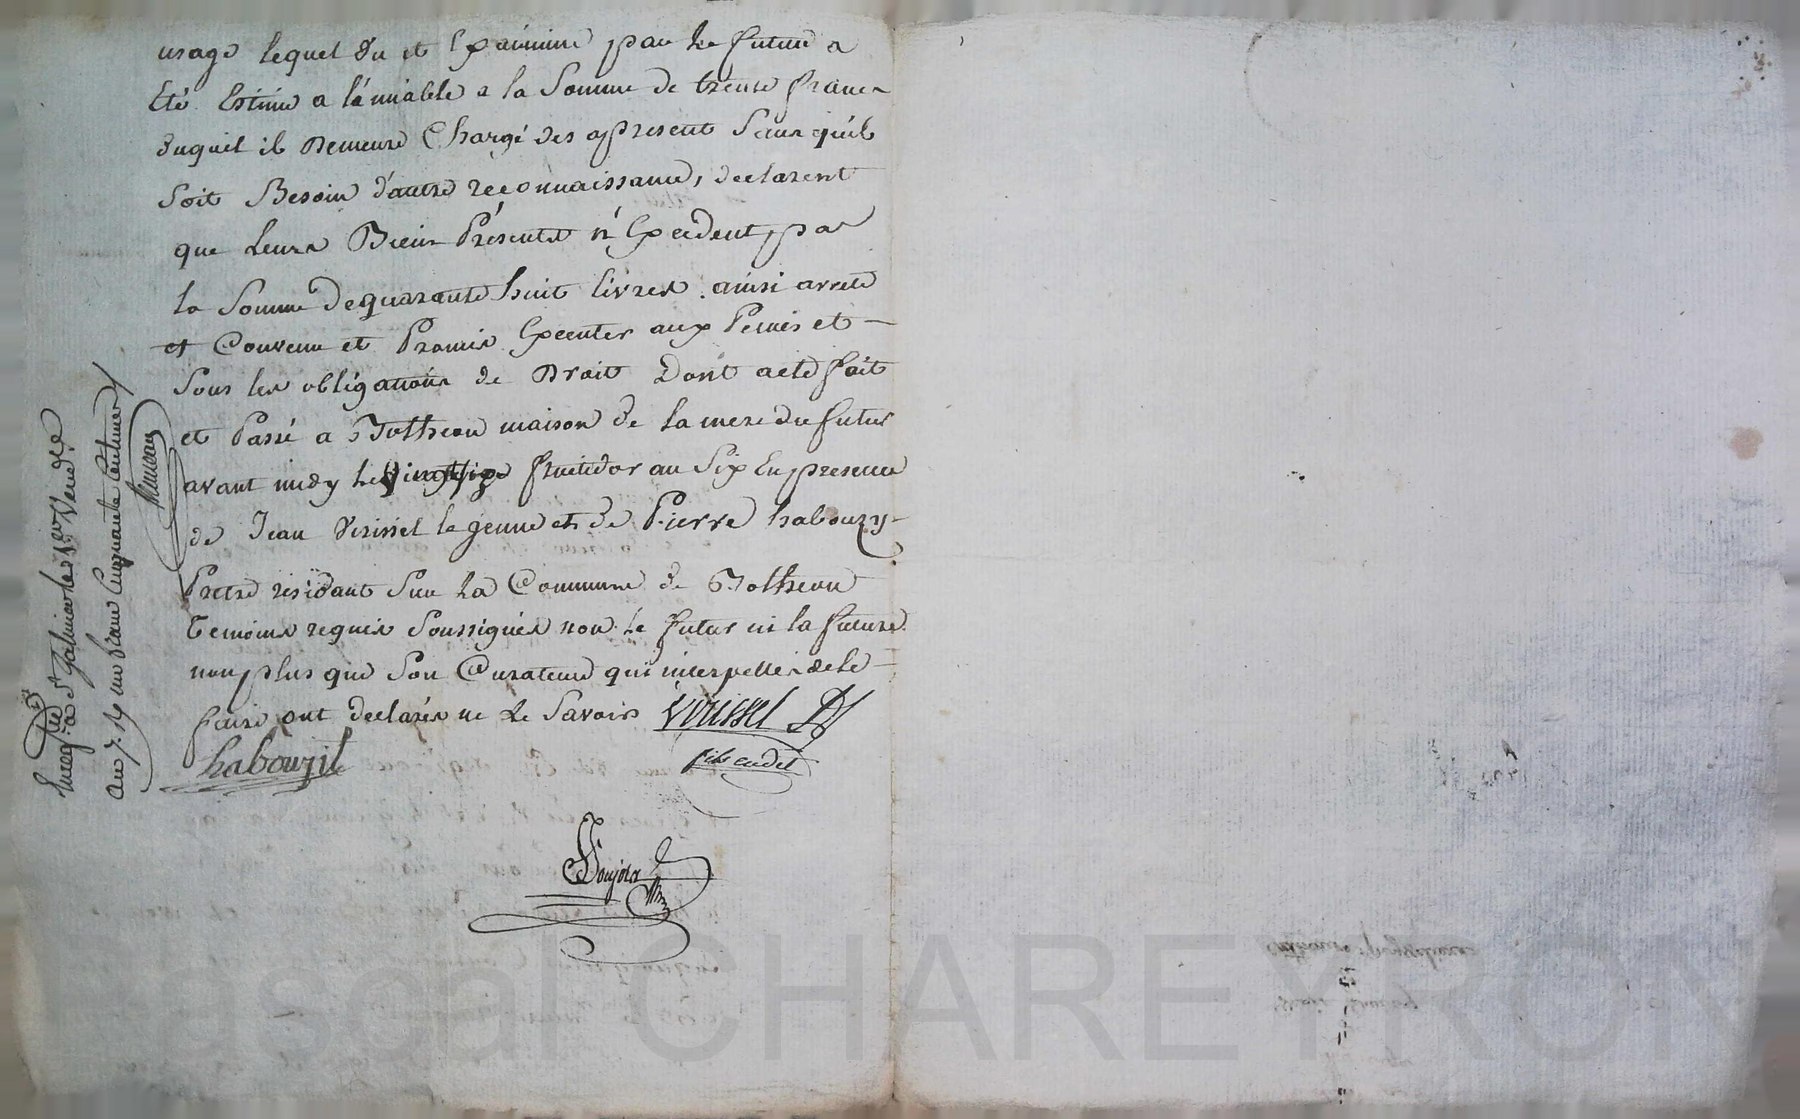 usage lequel vu et Examiné par le futur a
Eté Estimé a l'amiable a la Somme de trente francs
duquel il Demeure Chargé des apresent Sans qu'il
Soit Besoin d'autre reconnaissance, declarent
que leurs Biens Présents n'Excedent pas
la Somme de quarante huit livres. ainsi arreté
et Convenu et Promis Executer aux Peines et
Sous les obligations de Droit Dont acte fait
et Passé a maison de la mere du futur
avant midy le vingtsix fructidor an Six En presence
de Jean Verissel le jeune et de Pierre habouzy
Pretre residant Sur la Commune de
temoins requis Soussignés non le futur ni la future
non plus que Son Curateur qui interpellés de le
faire ont declarés ne le Savoir
habouzit
fils cadet
Enreg. a St Galmier le 1er Vend.re
an 7. un franc Cinquante Centimes
Pascal CHAREYRON